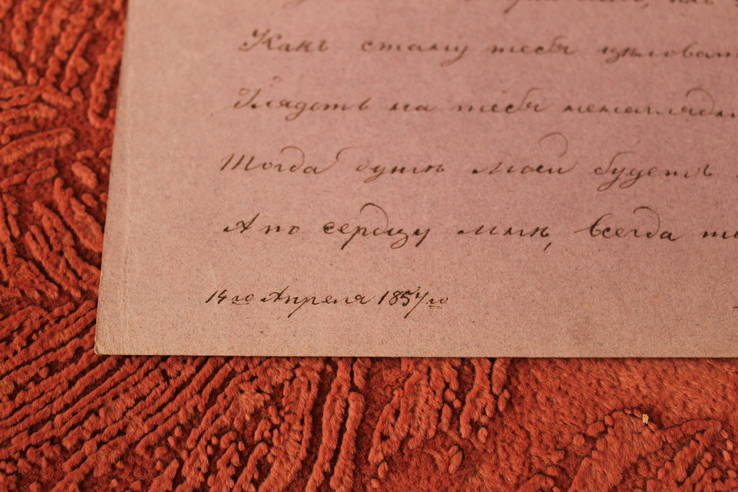 Какъ стану тебя цѣловать
Глядѣть на тебя ненаглядн
Тогда душѣ моей будетъ
А по сердцу мнѣ, всегда
14го Апреля 1857го